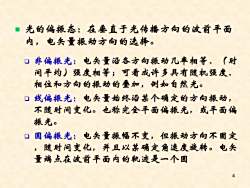 光的偏振态：在垂直于光传播方向的波前平面
内，电矢量振动方向的选择。
非偏振光：电矢量沿各方向振动几率相等、（时
间平均）强度相等；可看成许多具有随机强度、
相位和方向的振动的叠加，例如自然光。
线偏振光：电矢量始终沿某个确定的方向振动，
不随时间变化。也称完全平面偏振光，或平面偏
振光。
圆偏振光：电矢量振幅不变，但振动方向不固定
，随时间变化，并且以某确定角速度旋转。电矢
量端点在波前平面内的轨迹是一个圆
4